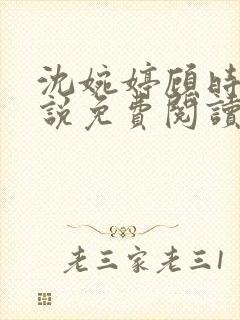 沈婉婷顾时
說免費閱讀
老三家老三1